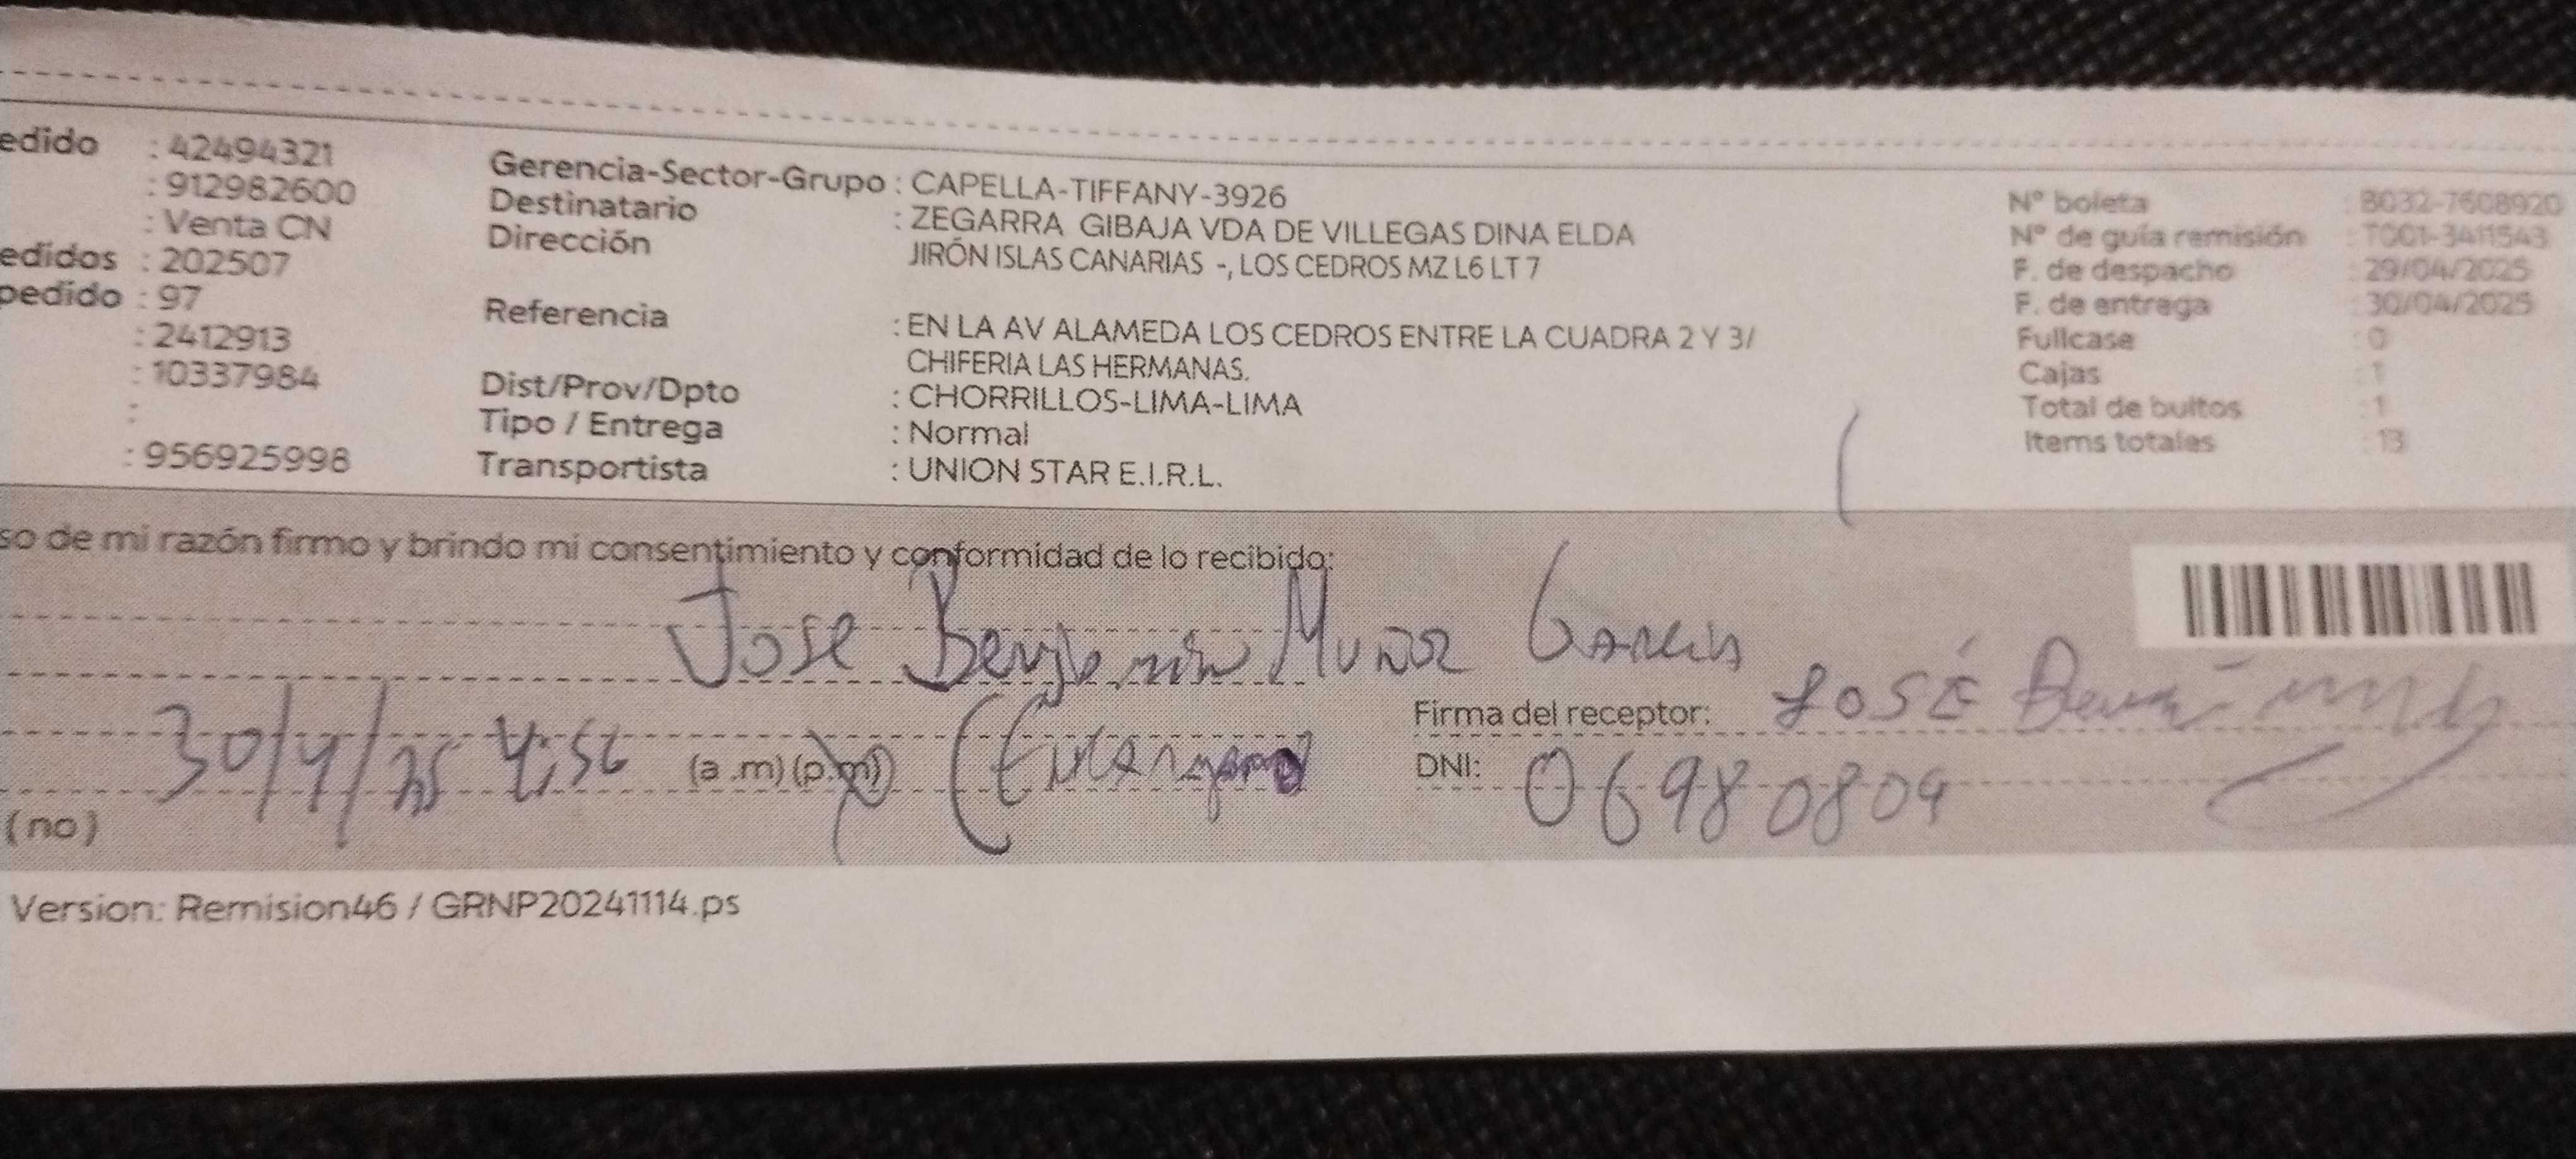 edido : 42494321
: 912982600
: Venta CN
edidos : 202507
pedido : 97
: 2412913
: 10337984
:
: 956925998
Gerencia-Sector-Grupo : CAPELLA-TIFFANY-3926
Destinatario : ZEGARRA GIBAJA VDA DE VILLEGAS DINA ELDA
Dirección JIRÓN ISLAS CANARIAS -, LOS CEDROS MZ L6 LT 7
Referencia : EN LA AV ALAMEDA LOS CEDROS ENTRE LA CUADRA 2 Y 3/
CHIFERIA LAS HERMANAS.
Dist/Prov/Dpto : CHORRILLOS-LIMA-LIMA
Tipo / Entrega : Normal
Transportista : UNION STAR E.I.R.L.
N° boleta : B032-7608920
N° de guía remisión : T001-3411543
F. de despacho : 29/04/2025
F. de entrega : 30/04/2025
Fullcase : 0
Cajas : 1
Total de bultos : 1
Items totales : 13
so de mi razón firmo y brindo mi consentimiento y conformidad de lo recibido:
Jose Benjamin Muñoz Garcia
Firma del receptor: JOSÉ
30/4/25 4:56 (a .m) (p.m)
DNI: 06980804
(no)
Version: Remision46 / GRNP20241114.ps